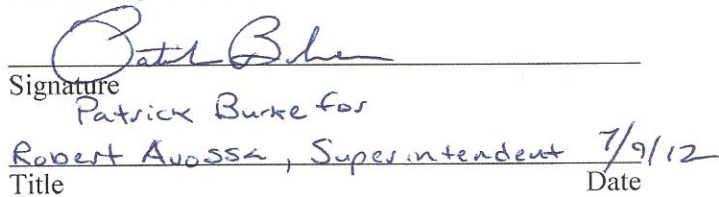 Patrick Burke
Signature
Patrick Burke for
Robert Avossa, Superintendent 7/9/12
Title Date